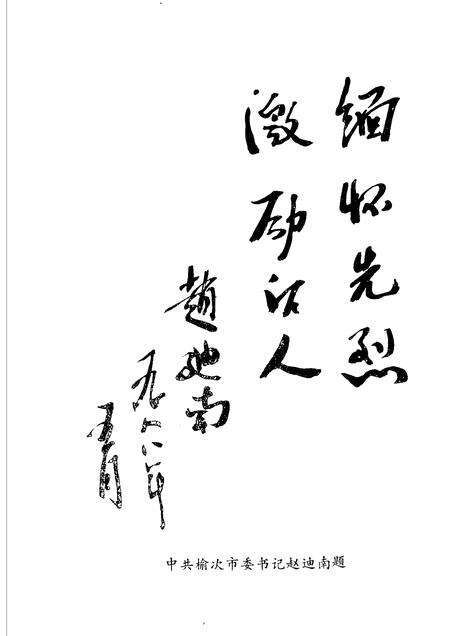 缅怀先烈
激励后人
趙迪南
九八年
五月
中共榆次市委书记赵迪南题